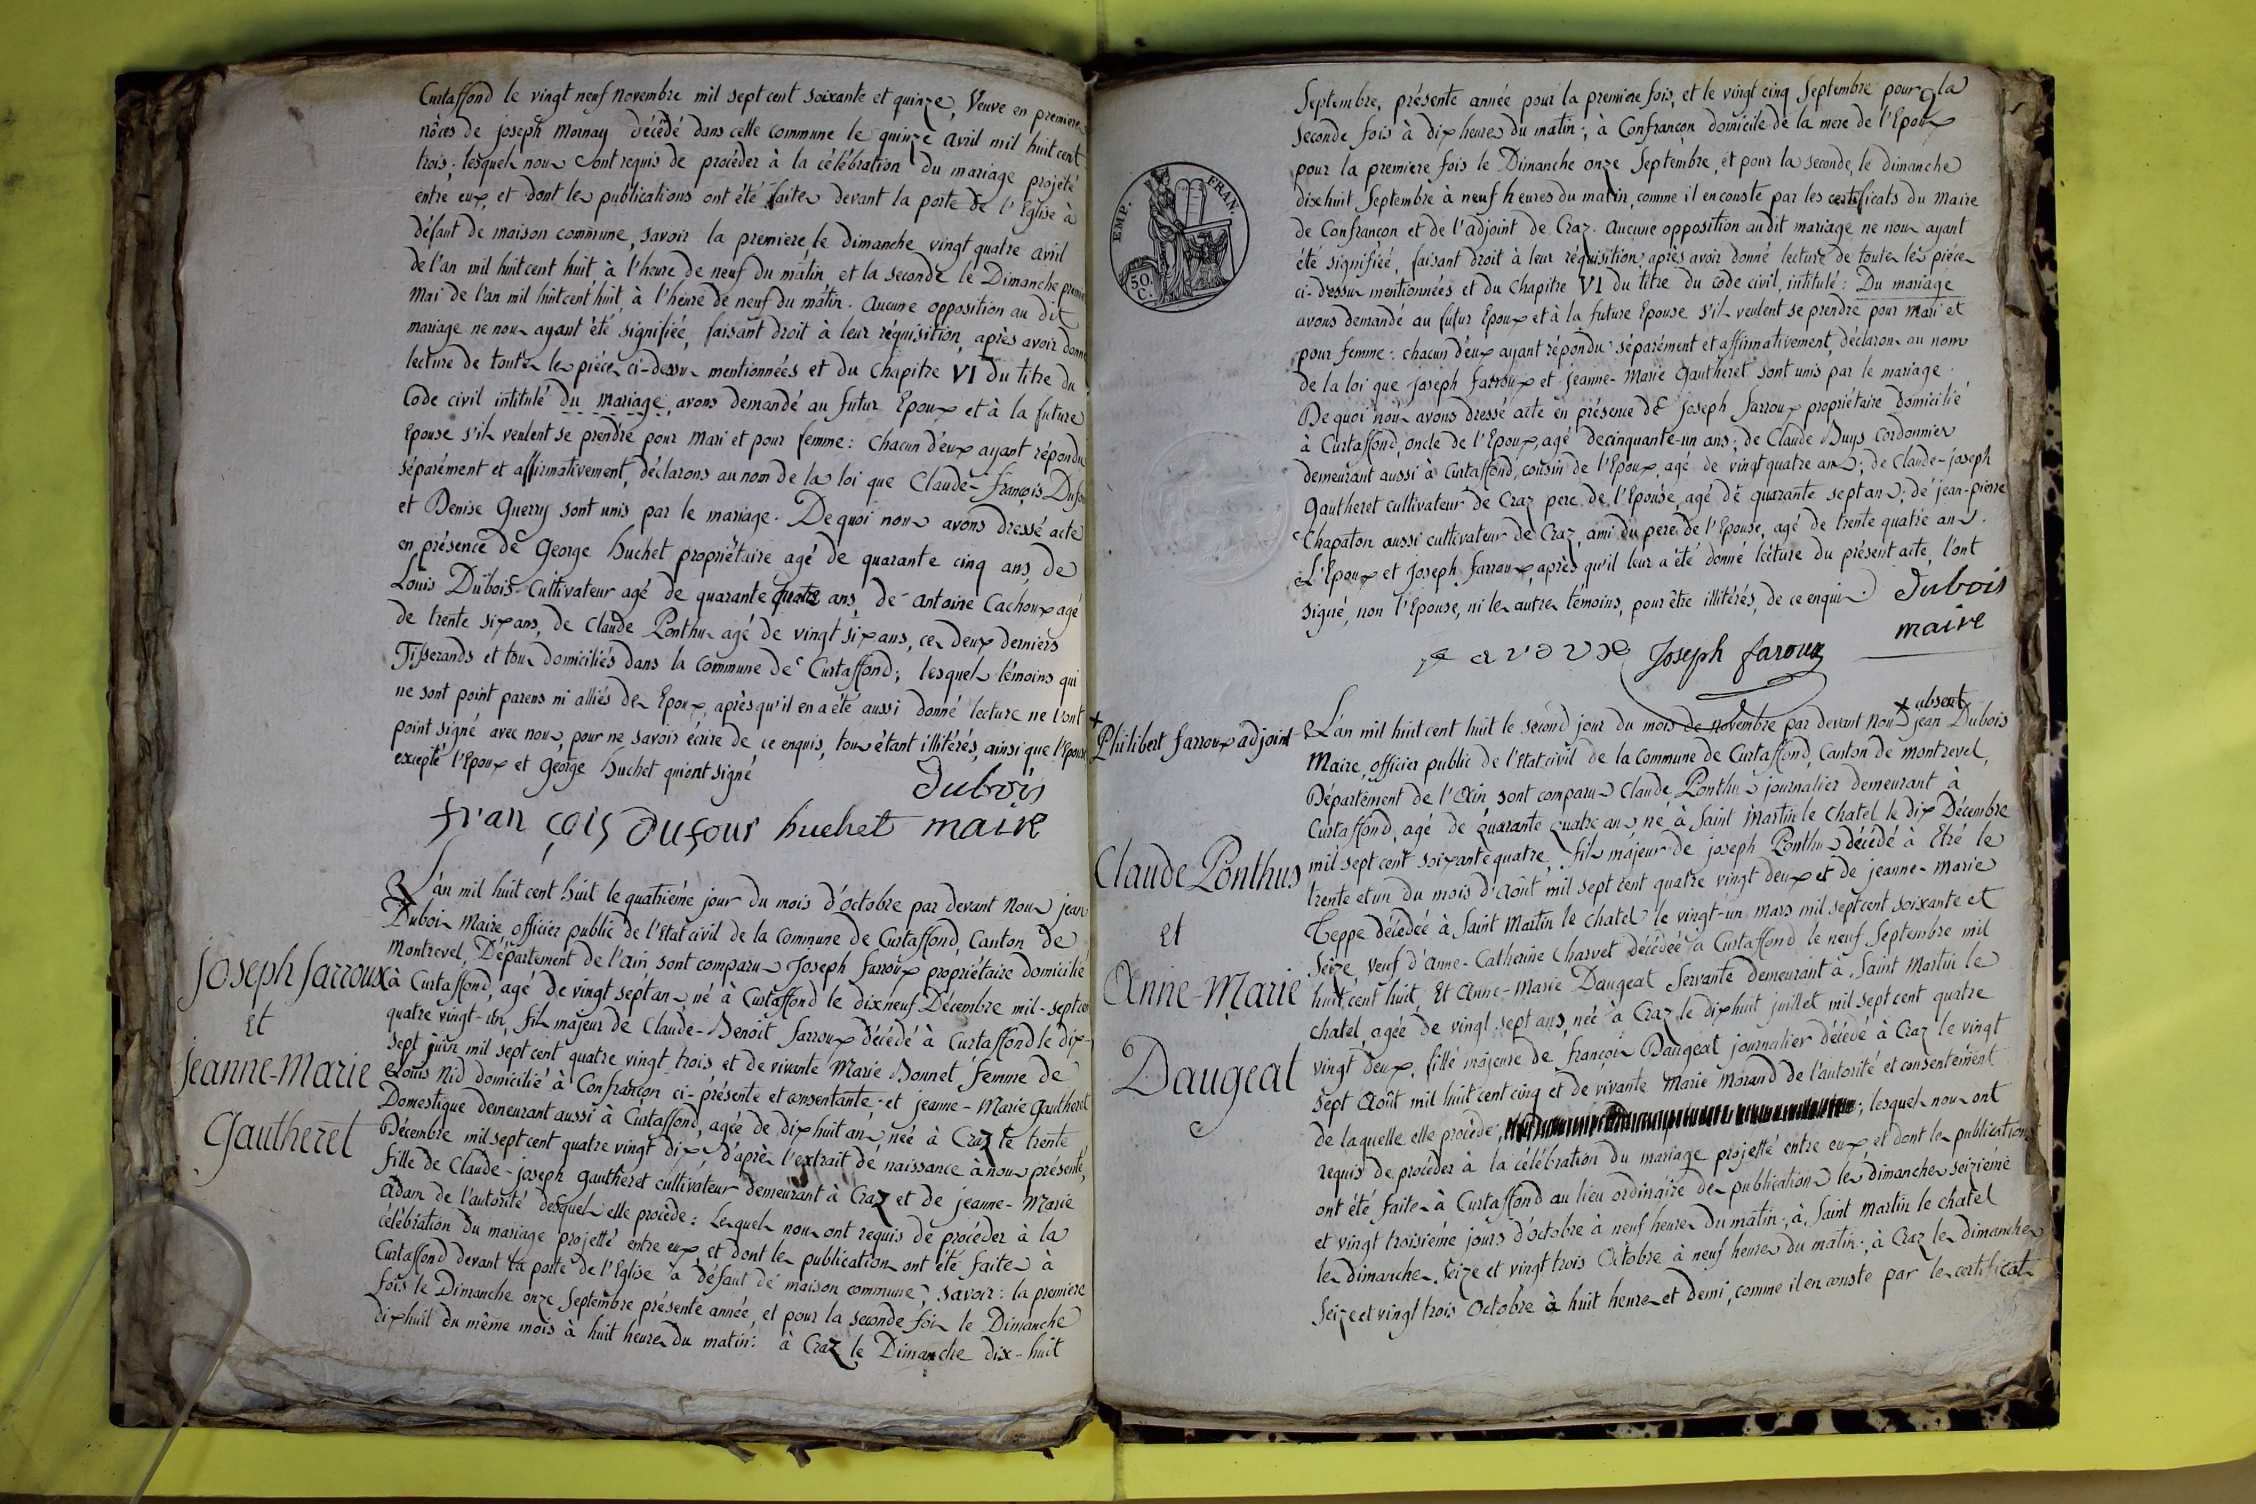 Curtaffond le vingt neuf Novembre mil sept cent soixante et quinze, Veuve en premieres
nôces de joseph Mornay décédé dans cette commune le quinze avril mil huit cent
trois; lesquels nous ont requis de procéder à la célébration du mariage projeté
entre eux, et dont les publications ont été faites devant la porte de l'Eglise à
défaut de maison commune, savoir la premiere, le dimanche vingt quatre avril
de l'an mil huit cent huit à l'heure de neuf du matin et la seconde le Dimanche premier
Mai de l'an mil huit cent huit, à l'heure de neuf du matin. aucune opposition au dit
mariage ne nous ayant été signifiée, faisant droit à leur réquisition, après avoir donné
lecture de toutes les piéces ci-dessus mentionnées et du chapitre VI du titre du
Code civil intitulé du mariage, avons demandé au futur Epoux et à la future
Epouse s'ils veulent se prendre pour Mari et pour femme: chacun d'eux ayant répondu
séparément et affirmativement, déclarons au nom de la loi que Claude-François Dufour
et Denise Guerry sont unis par le mariage. De quoi nous avons dressé acte
en présence de George huchet propriétaire agé de quarante cinq ans, de
Louis Dubois Cultivateur agé de quarante quatre ans, de antoine Cachoux agé
de trente six ans, de Claude Ponthus agé de vingt six ans, ces deux derniers
Tisserands et tous domiciliés dans la Commune de Curtaffond; lesquels témoins qui
ne sont point parens ni alliés des Epoux, après qu'il en a été aussi donné lecture ne l'ont
point signé avec nous, pour ne savoir écrire de ce enquis, tous étant illitérés, ainsi que l'Epouse
excepté l'Epoux et George huchet qui ont signé
Dubois
françois Dufour huchet maire
L'an mil huit cent huit le quatriéme jour du mois d'octobre par devant Nous jean
Dubois Maire officier public de l'Etat civil de la Commune de Curtaffond, Canton de
Montrevel, Département de l'ain, sont comparus Joseph farroux propriétaire domicilié
Joseph farroux
et
Jeanne-Marie
Gautheret
à Curtaffond, agé de vingt sept ans né à Curtaffond le dix neuf Décembre mil-sept cent
quatre vingt-un, fils majeur de Claude-Benoit farroux décédé à Curtaffond le dix-
sept juin mil sept cent quatre vingt trois et de vivante Marie Bonnet femme de
Louis Nid domicilié à Confrançon ci-présente et consentante - et jeanne-Marie Gautheret
Domestique demeurant aussi à Curtaffond, agée de dix huit ans, née à Craz le trente
Décembre mil sept cent quatre vingt dix, d'après l'extrait de naissance à nous présenté,
fille de Claude-joseph gautheret cultivateur demeurant à Craz et de jeanne-Marie
Adam de l'autorité desquels elle procède: Lesquels nous ont requis de procéder à la
célébration du mariage projetté entre eux, et dont les publications ont été faites à
Curtaffond devant la porte de l'Eglise à défaut de maison commune, savoir: la premiere
fois le Dimanche onze Septembre présente année, et pour la seconde fois le Dimanche
dix huit du même mois à huit heures du matin: à Craz le Dimanche dix-huit
Septembre, présente année pour la premiere fois, et le vingt cinq Septembre pour la
seconde fois à dix heures du matin; à Confrançon domicile de la mere de l'Epoux
pour la premiere fois le Dimanche onze Septembre, et pour la seconde, le dimanche
dixhuit Septembre à neuf heures du matin, comme il en conste par les certificats du Maire
de Confrançon et de l'adjoint de Craz. Aucune opposition audit mariage ne nous ayant
été signifiée, faisant droit à leur réquisition après avoir donné lecture de toutes les piéces
ci-dessus mentionnées et du Chapitre VI du titre du code civil, intitulé: Du mariage
avons demandé au futur Epoux et à la future Epouse s'ils veulent se prendre pour Mari et
pour femme: chacun d'eux ayant répondu séparément et affirmativement, déclarons au nom
de la loi que joseph farroux et jeanne-Marie Gautheret sont unis par le mariage.
De quoi nous avons dressé acte en présence de Joseph farroux propriétaire domicilié
à Curtaffond, oncle de l'Epoux, agé de cinquante-un ans; de Claude Buys Cordonnier
demeurant aussi à Curtaffond, cousin de l'Epoux, agé de vingt quatre ans; de Claude-joseph
Gautheret cultivateur de Craz pere de l'Epouse, agé de quarante sept ans; de jean-pierre
Chapaton aussi cultivateur de Craz, ami du pere de l'Epouse, agé de trente quatre ans.
L'Epoux et Joseph farroux, après qu'il leur a été donné lecture du présent acte, l'ont
signé, non l'Epouse, ni les autres témoins, pour être illitérés, de ce enquis. Dubois
maire
Joseph faroux
EMP. FRAN.
50. C.
x absent
+ Philibert farroux adjoint
L'an mil huit cent huit le second jour du mois de novembre par devant Nous jean Dubois
Maire, officier public de l'Etat civil de la Commune de Curtaffond, Canton de Montrevel,
Département de l'Ain, sont comparus Claude Ponthus journalier demeurant à
Curtaffond, agé de quarante quatre ans, né à Saint Martin le chatel le dix Décembre
Claude Ponthus
et
Anne-Marie
Daugeat
mil sept cent soixante quatre, fils majeur de joseph Ponthus décédé à Etré le
trente et un du mois d'Août mil sept cent quatre vingt deux et de jeanne-Marie
Teppe décédée à Saint Martin le chatel le vingt-un mars mil sept cent soixante et
Seize, veuf d'Anne-Catherine Charvet décédée à Curtaffond le neuf Septembre mil
huit cent huit, Et Anne-Marie Daugeat Servante demeurant à Saint Martin le
chatel, agée de vingt sept ans, née à Craz le dix huit juillet mil sept cent quatre
vingt deux, fille majeure de françois Daugeat journalier décédé à Craz le vingt
sept Août mil huit cent cinq et de vivante Marie Morand de l'autorité et consentement
de laquelle elle procède; lesquels nous ont
requis de procéder à la célébration du mariage projetté entre eux et dont les publications
ont été faites à Curtaffond au lieu ordinaire des publications les dimanches seiziéme
et vingt troisiéme jours d'octobre à neuf heures du matin; à Saint Martin le chatel
les dimanches seize et vingt trois Octobre à neuf heures du matin; à Craz les dimanches
Seize et vingt trois Octobre à huit heures et demi, comme il en conste par les certificats